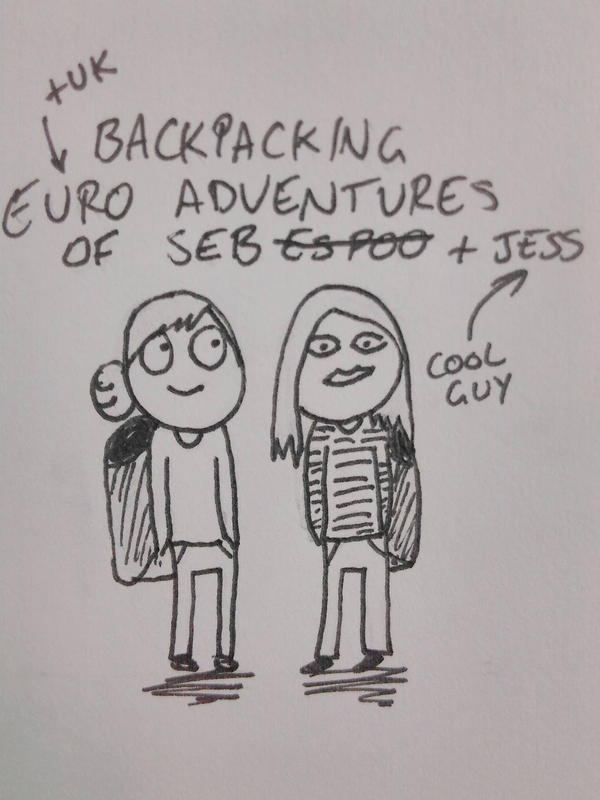 +UK
BACKPACKING
EURO ADVENTURES
OF SEB ESPOO + JESS
COOL
GUY